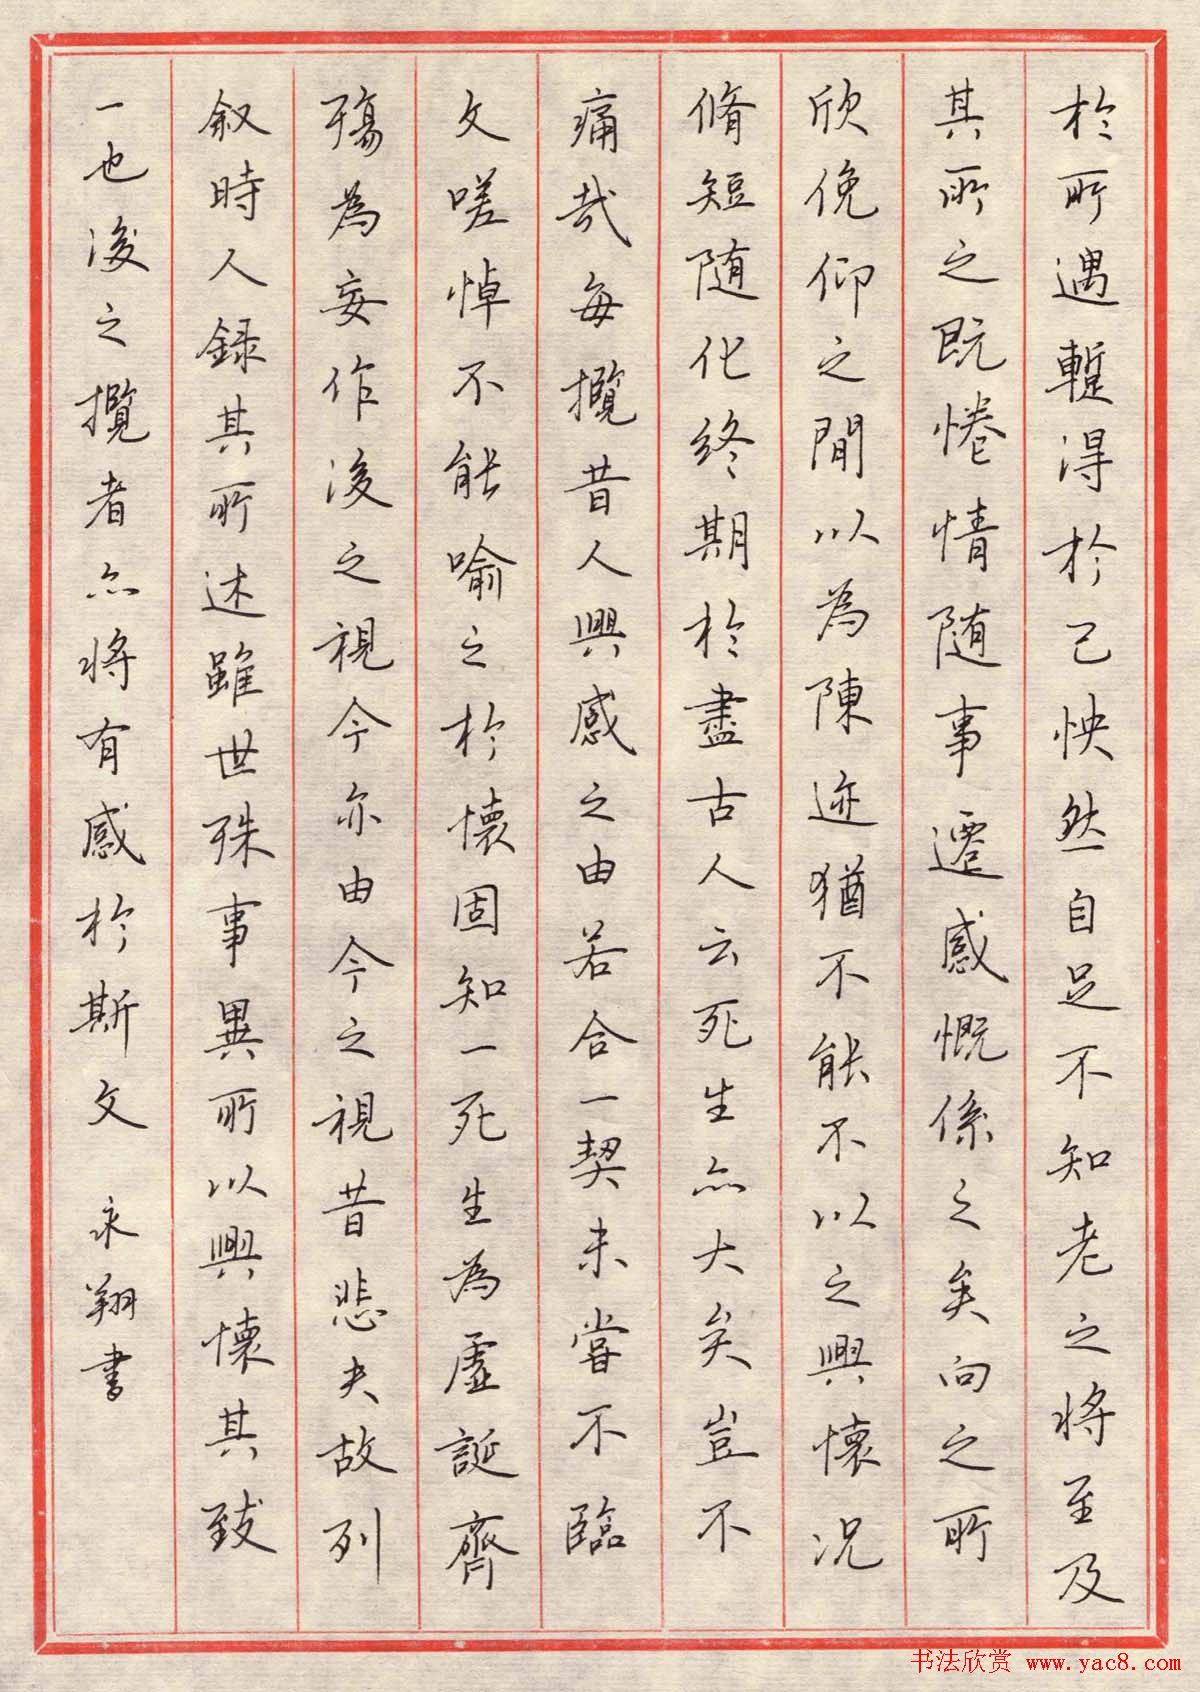 於所遇暫得於己怏然自足不知老之将至及
其所之既惓情随事遷感慨係之矣向之所
欣俛仰之閒以為陳迹猶不能不以之興懷况
脩短随化终期於盡古人云死生亦大矣豈不
痛哉每攬昔人興感之由若合一契未嘗不臨
文嗟悼不能喻之於懷固知一死生為虛誕齊
殤為妄作後之視今亦由今之視昔悲夫故列
叙時人録其所述雖世殊事異所以興懷其致
一也後之攬者亦将有感於斯文 永翔書
书法欣赏 www.yac8.com